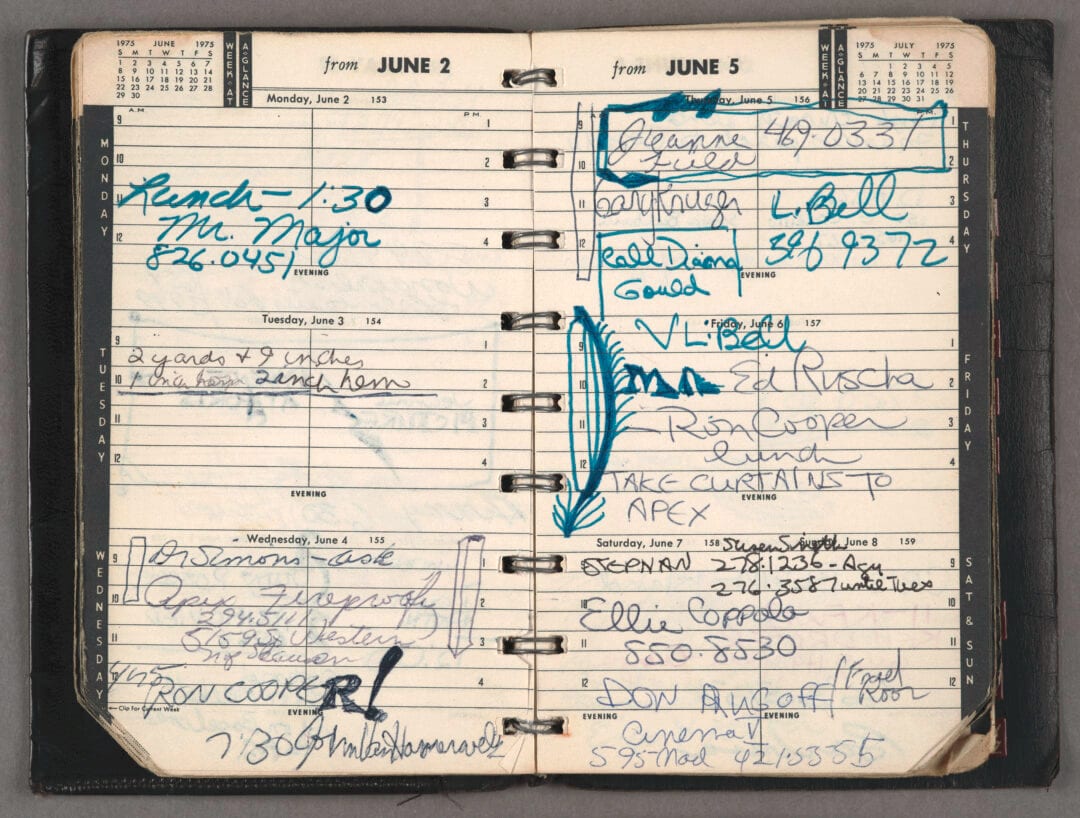 1975 JUNE 1975
S M T W T F S
1 2 3 4 5 6 7
8 9 10 11 12 13 14
15 16 17 18 19 20 21
22 23 24 25 26 27 28
29 30
WEEK-AT
A-GLANCE
from JUNE 2
Monday, June 2 153
A.M. P.M.
MONDAY
9 1
10 2
11 3
12 4
Lunch - 1:30
Mr. Major
826.0451
EVENING
Tuesday, June 3 154
TUESDAY
9 1
10 2
11 3
12 4
2 yards + 9 inches
2 inch hem
EVENING
Wednesday, June 4 155
WEDNESDAY
9 1
10 2
11 3
12 4
Dr Simons - ask
Apex Fireproofing
294.5111
5159 S. Western
RON COOPER!
← Clip for Current Week
EVENING
7:30
from JUNE 5
WEEK-AT
A-GLANCE
1975 JULY 1975
S M T W T F S
1 2 3 4 5
6 7 8 9 10 11 12
13 14 15 16 17 18 19
20 21 22 23 24 25 26
27 28 29 30 31
Thursday, June 5 156
THURSDAY
9 1
10 2
11 3
12 4
Jeanne 469.0331
Field
Gary Krueger L. Bell
Call Diana 396 9372
Gould
EVENING
Friday, June 6 157
FRIDAY
9 1
10 2
11 3
12 4
L. Bell
Ed Ruscha
- Ron Cooper
lunch
TAKE CURTAINS TO
APEX
EVENING
Saturday, June 7 158 Sunday, June 8 159
SAT & SUN
9 9
10 10
11 11
12 12
STEPHAN 278.1236 -
276.3587 until Tues
Ellie Coppola
550.8530
DON RUGOFF
EVENING EVENING
Cinema V
595 Mad 421.5555